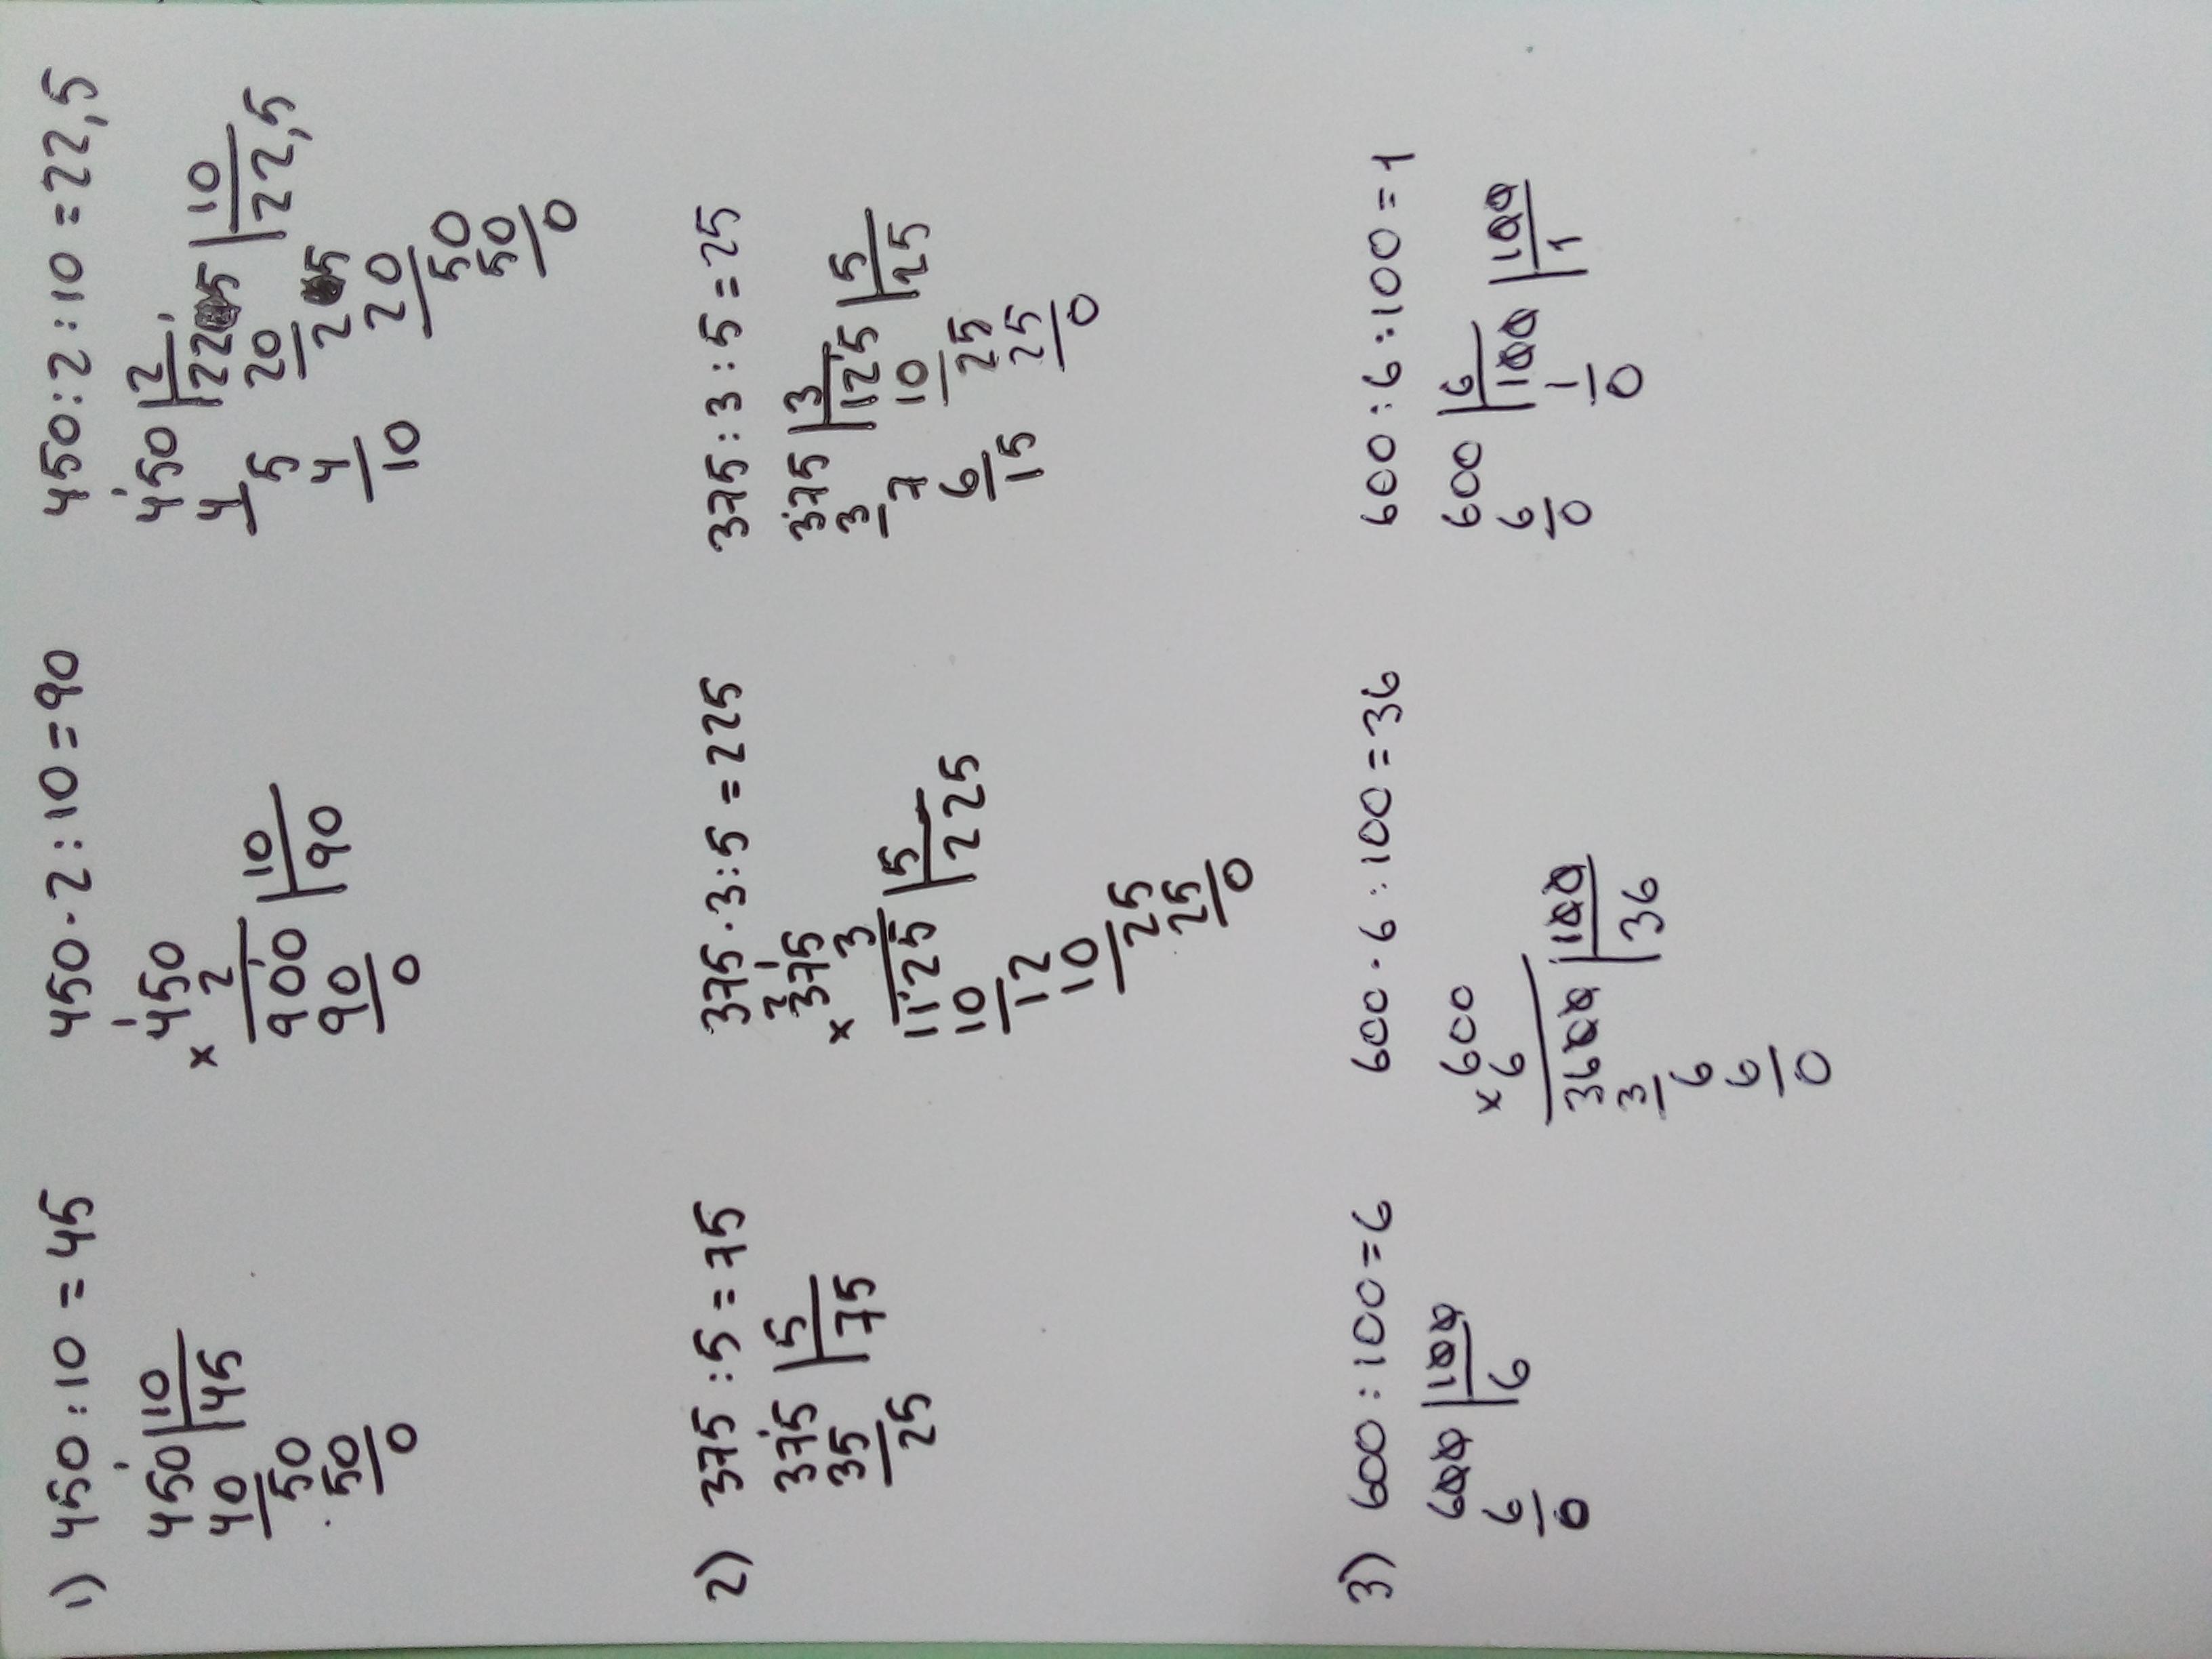 1) 450 : 10 = 45
450 | 10
40 | 45
50
50
0
450 · 2 : 10 = 90
1
450
x 2
900 | 10
90 | 90
0
450 : 2 : 10 = 22,5
450 | 2
4 | 225 | 10
5 20 | 22,5
4 25
10 20
50
50
0
2) 375 : 5 = 75
375 | 5
35 | 75
25
375 · 3 : 5 = 225
2 1
375
x 3
1125 | 5
10 | 225
12
10
25
25
0
375 : 3 : 5 = 25
375 | 3
3 | 125 | 5
7 10 | 25
6 25
15 25
0
3) 600 : 100 = 6
600 | 100
6 | 6
0
600 · 6 : 100 = 36
x 600
6
3600 | 100
3 | 36
6
6
0
600 : 6 : 100 = 1
600 | 6
6 | 100 | 100
0 1 | 1
0